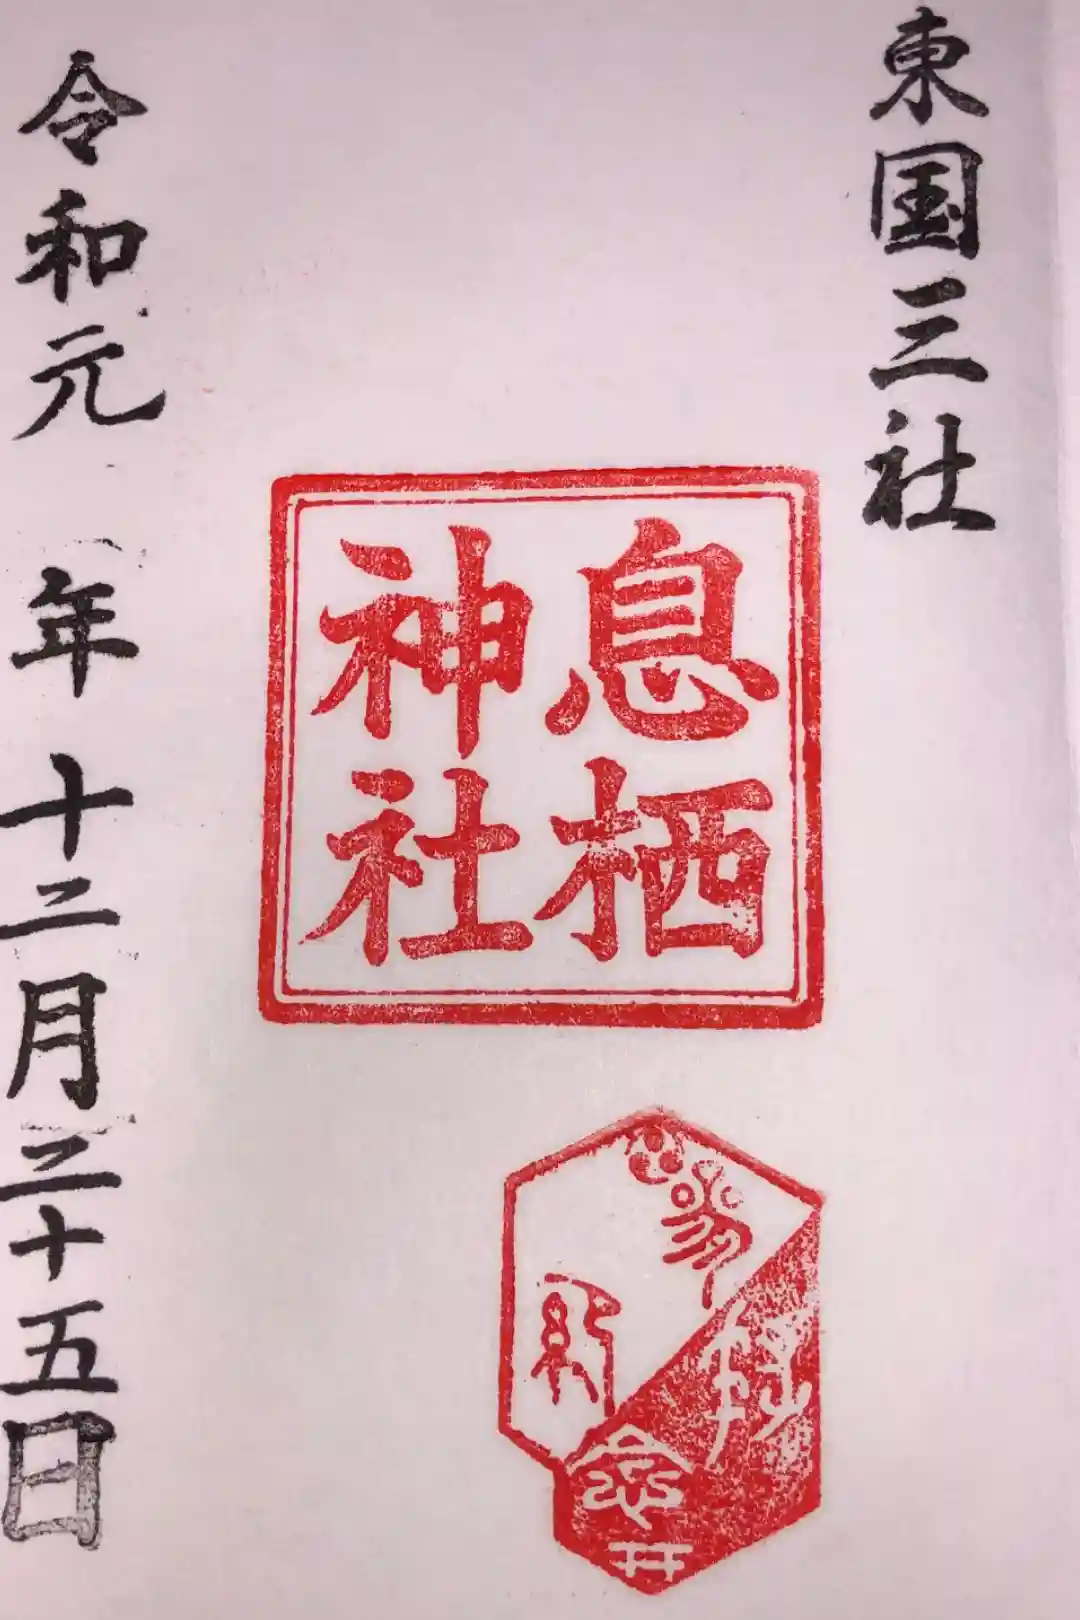 東国三社
息栖
神社
令和元年十二月二十五日